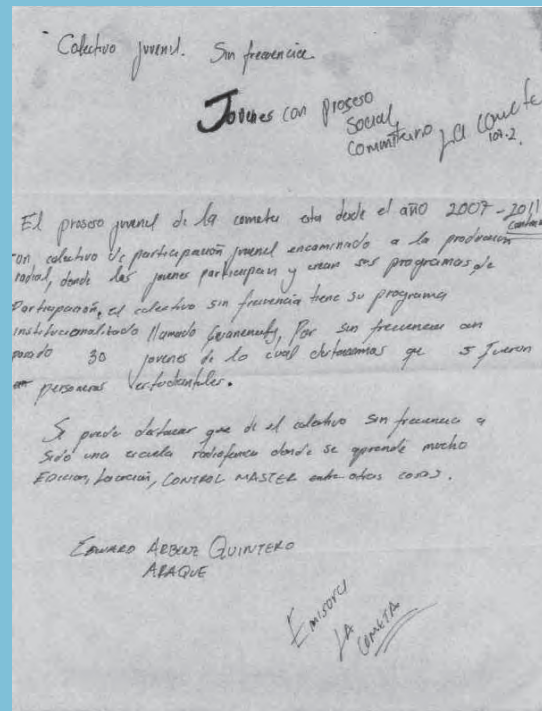 Colectivo juvenil. Sin frecuencia
Jovenes con proseso
Social
Comunitario La Cometa
107.2
El proseso juvenil de la cometa esta desde el año 2007-2011
un colectivo de participación juvenil encaminado a la producción
radial, donde los jovenes participan y crean sus programas de
Participación, el colectivo sin frecuencia tiene su programa
institucionalizado llamado, Por sin frecuencia an
pasado 30 jovenes de lo cual destacamos que 5 fueron
personeros estudiantiles.
Se puede destacar que de el colectivo sin frecuencia a
sido una escuela radiofonica donde se aprende mucho
Edicion, Locución, CONTROL MASTER entre otras cosas.
EDWARD QUINTERO
ARAQUE
Emisora
LA
COMETA